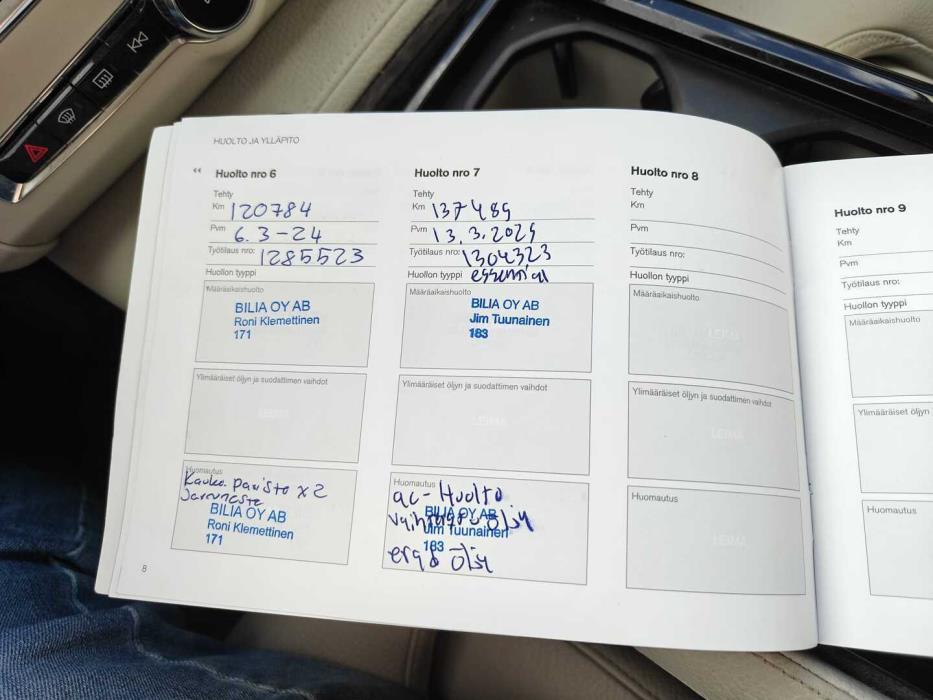 HUOLTO JA YLLÄPITO
◂◂ Huolto nro 6
Tehty
Km 120784
Pvm 6.3-24
Työtilaus nro: 1285523
Huollon tyyppi
Määräaikaishuolto
BILIA OY AB
Roni Klemettinen
171
Ylimääräiset öljyn ja suodattimen vaihdot
LEIMA
Huomautus
Kauko. paristo x2
Jarruneste
BILIA OY AB
Roni Klemettinen
171
8
Huolto nro 7
Tehty
Km 137489
Pvm 13.3.2025
Työtilaus nro: 1304323
Huollon tyyppi essential
Määräaikaishuolto
BILIA OY AB
Jim Tuunainen
183
Ylimääräiset öljyn ja suodattimen vaihdot
LEIMA
Huomautus
ac-Huolto
öljy
BILIA OY AB
Jim Tuunainen
183
öljy
Huolto nro 8
Tehty
Km
Pvm
Työtilaus nro:
Huollon tyyppi
Määräaikaishuolto
LEIMA
Ylimääräiset öljyn ja suodattimen vaihdot
LEIMA
Huomautus
LEIMA
Huolto nro 9
Tehty
Km
Pvm
Työtilaus nro:
Huollon tyyppi
Määräaikaishuolto
Ylimääräiset öljyn
Huomautus